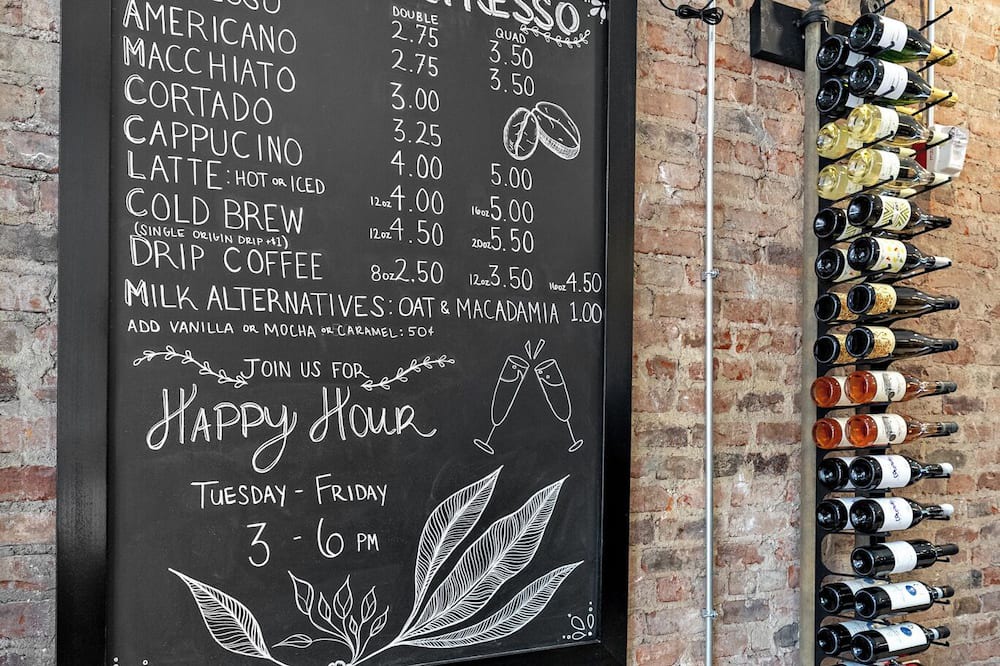 ESPRESSO
DOUBLE QUAD
ESPRESSO 2.75 3.50
AMERICANO 2.75 3.50
MACCHIATO 3.00
CORTADO 3.25
CAPPUCINO 4.00 5.00
LATTE: HOT OR ICED 12oz 4.00 16oz 5.00
COLD BREW 12oz 4.50 20oz 5.50
(SINGLE ORIGIN DRIP +$1)
DRIP COFFEE 8oz 2.50 12oz 3.50 16oz 4.50
MILK ALTERNATIVES: OAT & MACADAMIA 1.00
ADD VANILLA OR MOCHA OR CARAMEL: 50¢
JOIN US FOR
Happy Hour
TUESDAY - FRIDAY
3 - 6 PM